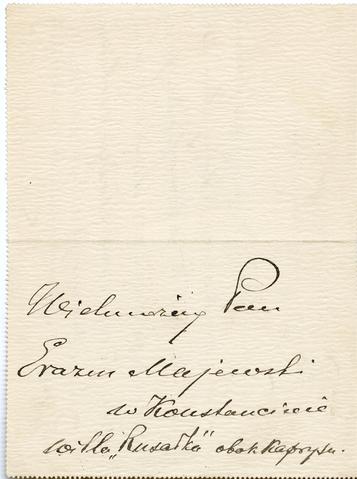 Wielmożny Pan
Erazm Majewski
w Konstancinie
willa „Rusałka" obok Kaprysu.